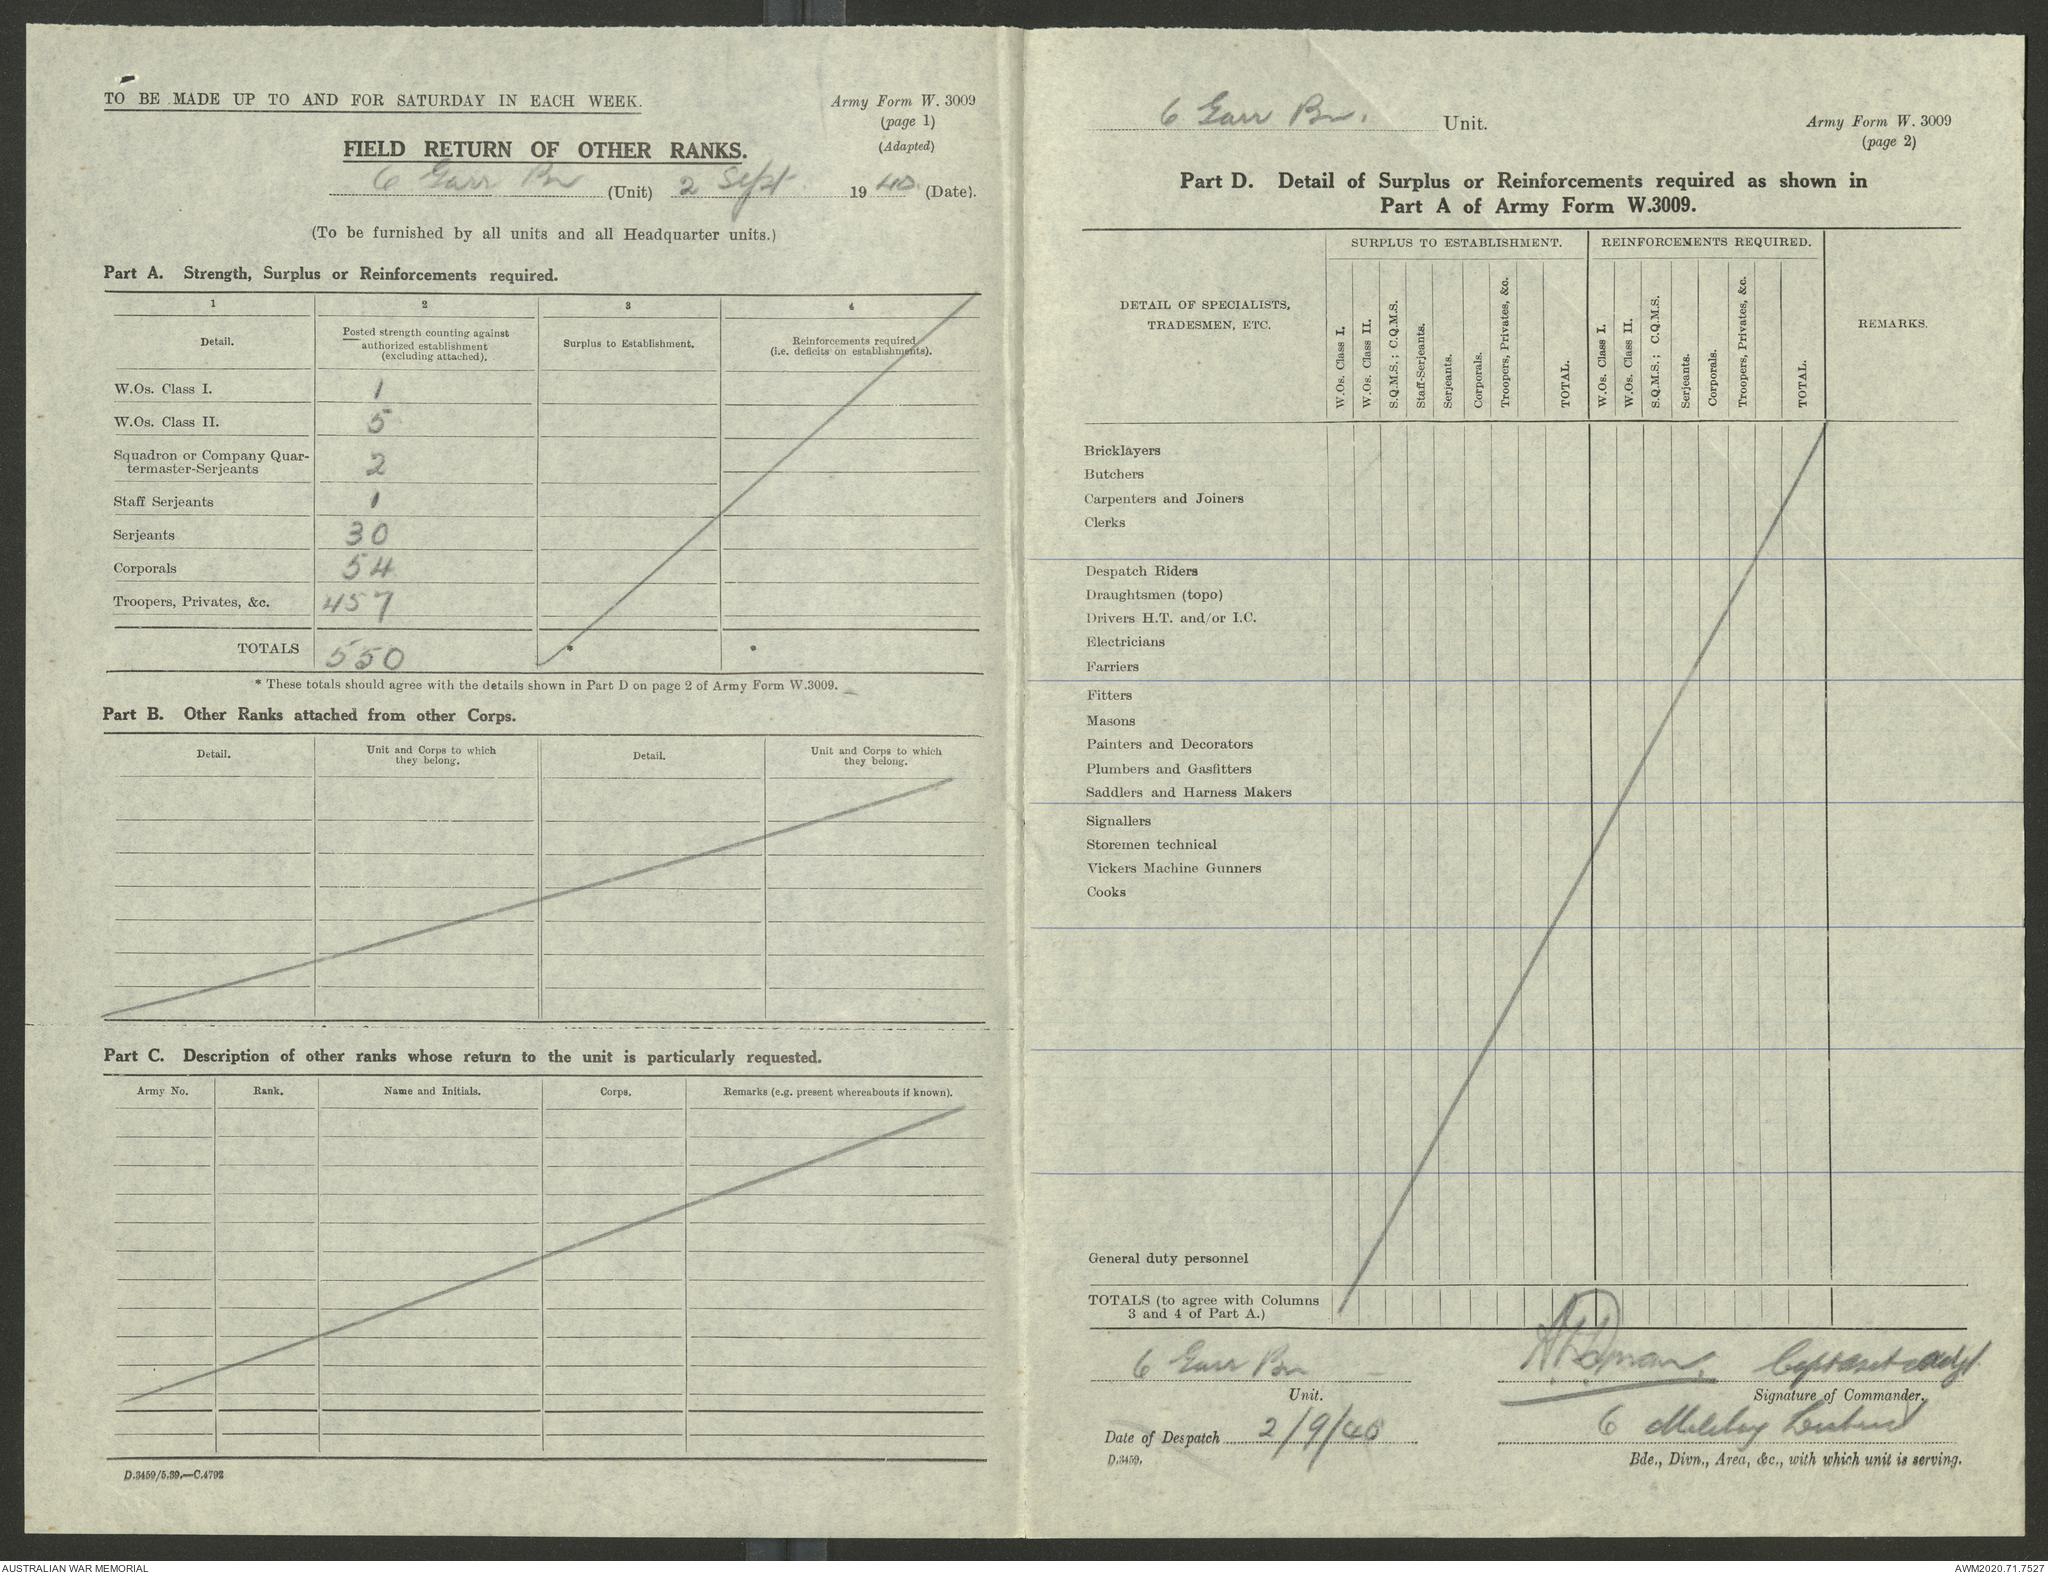 TO BE MADE UP TO AND FOR SATURDAY IN EACH WEEK.
Army Form W. 3009
(page 1)
(Adapted)
FIELD RETURN OF OTHER RANKS.
6 Garr Bn (Unit) 2 Sept 1940 (Date).
(To be furnished by all units and all Headquarter units.)
Part A. Strength, Surplus or Reinforcements required.
1 2 3 4
Detail. Posted strength counting against authorized establishment (excluding attached). Surplus to Establishment. Reinforcements required (i.e. deficits on establishments).
W.Os. Class I. 1
W.Os. Class II. 5
Squadron or Company Quar-
termaster-Serjeants 2
Staff Serjeants 1
Serjeants 30
Corporals 54
Troopers, Privates, &c. 457
TOTALS 550 * *
* These totals should agree with the details shown in Part D on page 2 of Army Form W.3009.
Part B. Other Ranks attached from other Corps.
Detail. Unit and Corps to which they belong. Detail. Unit and Corps to which they belong.
Part C. Description of other ranks whose return to the unit is particularly requested.
Army No. Rank. Name and Initials. Corps. Remarks (e.g. present whereabouts if known).
D.3459/5.39.—C.4792
6 Garr Bn. Unit.
Army Form W. 3009
(page 2)
Part D. Detail of Surplus or Reinforcements required as shown in
Part A of Army Form W.3009.
DETAIL OF SPECIALISTS,
TRADESMEN, ETC.
SURPLUS TO ESTABLISHMENT. REINFORCEMENTS REQUIRED.
W.Os. Class I. W.Os. Class II. S.Q.M.S.; C.Q.M.S. Staff-Serjeants. Serjeants. Corporals. Troopers, Privates, &c. TOTAL. W.Os. Class I. W.Os. Class II. S.Q.M.S.; C.Q.M.S. Serjeants. Corporals. Troopers, Privates, &c. TOTAL.
REMARKS.
Bricklayers
Butchers
Carpenters and Joiners
Clerks
Despatch Riders
Draughtsmen (topo)
Drivers H.T. and/or I.C.
Electricians
Farriers
Fitters
Masons
Painters and Decorators
Plumbers and Gasfitters
Saddlers and Harness Makers
Signallers
Storemen technical
Vickers Machine Gunners
Cooks
General duty personnel
TOTALS (to agree with Columns
3 and 4 of Part A.)
6 Garr Bn
Unit.
Capt
Signature of Commander.
Date of Despatch 2/9/40
6
Bde., Divn., Area, &c., with which unit is serving.
D.3459.
AUSTRALIAN WAR MEMORIAL
AWM2020.71.7527